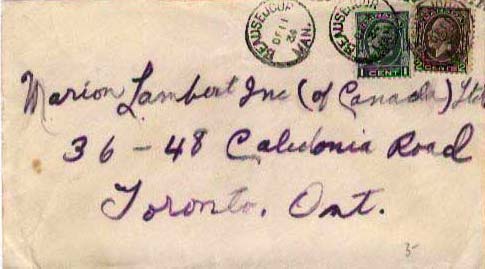 BEAUSEJOUR
MAN.
BEAUSEJOUR
MAN.
1 CENT 1
Marion Lambert Inc (of Canada) Ltd
36 - 48 Caledonia Road
Toronto, Ont.